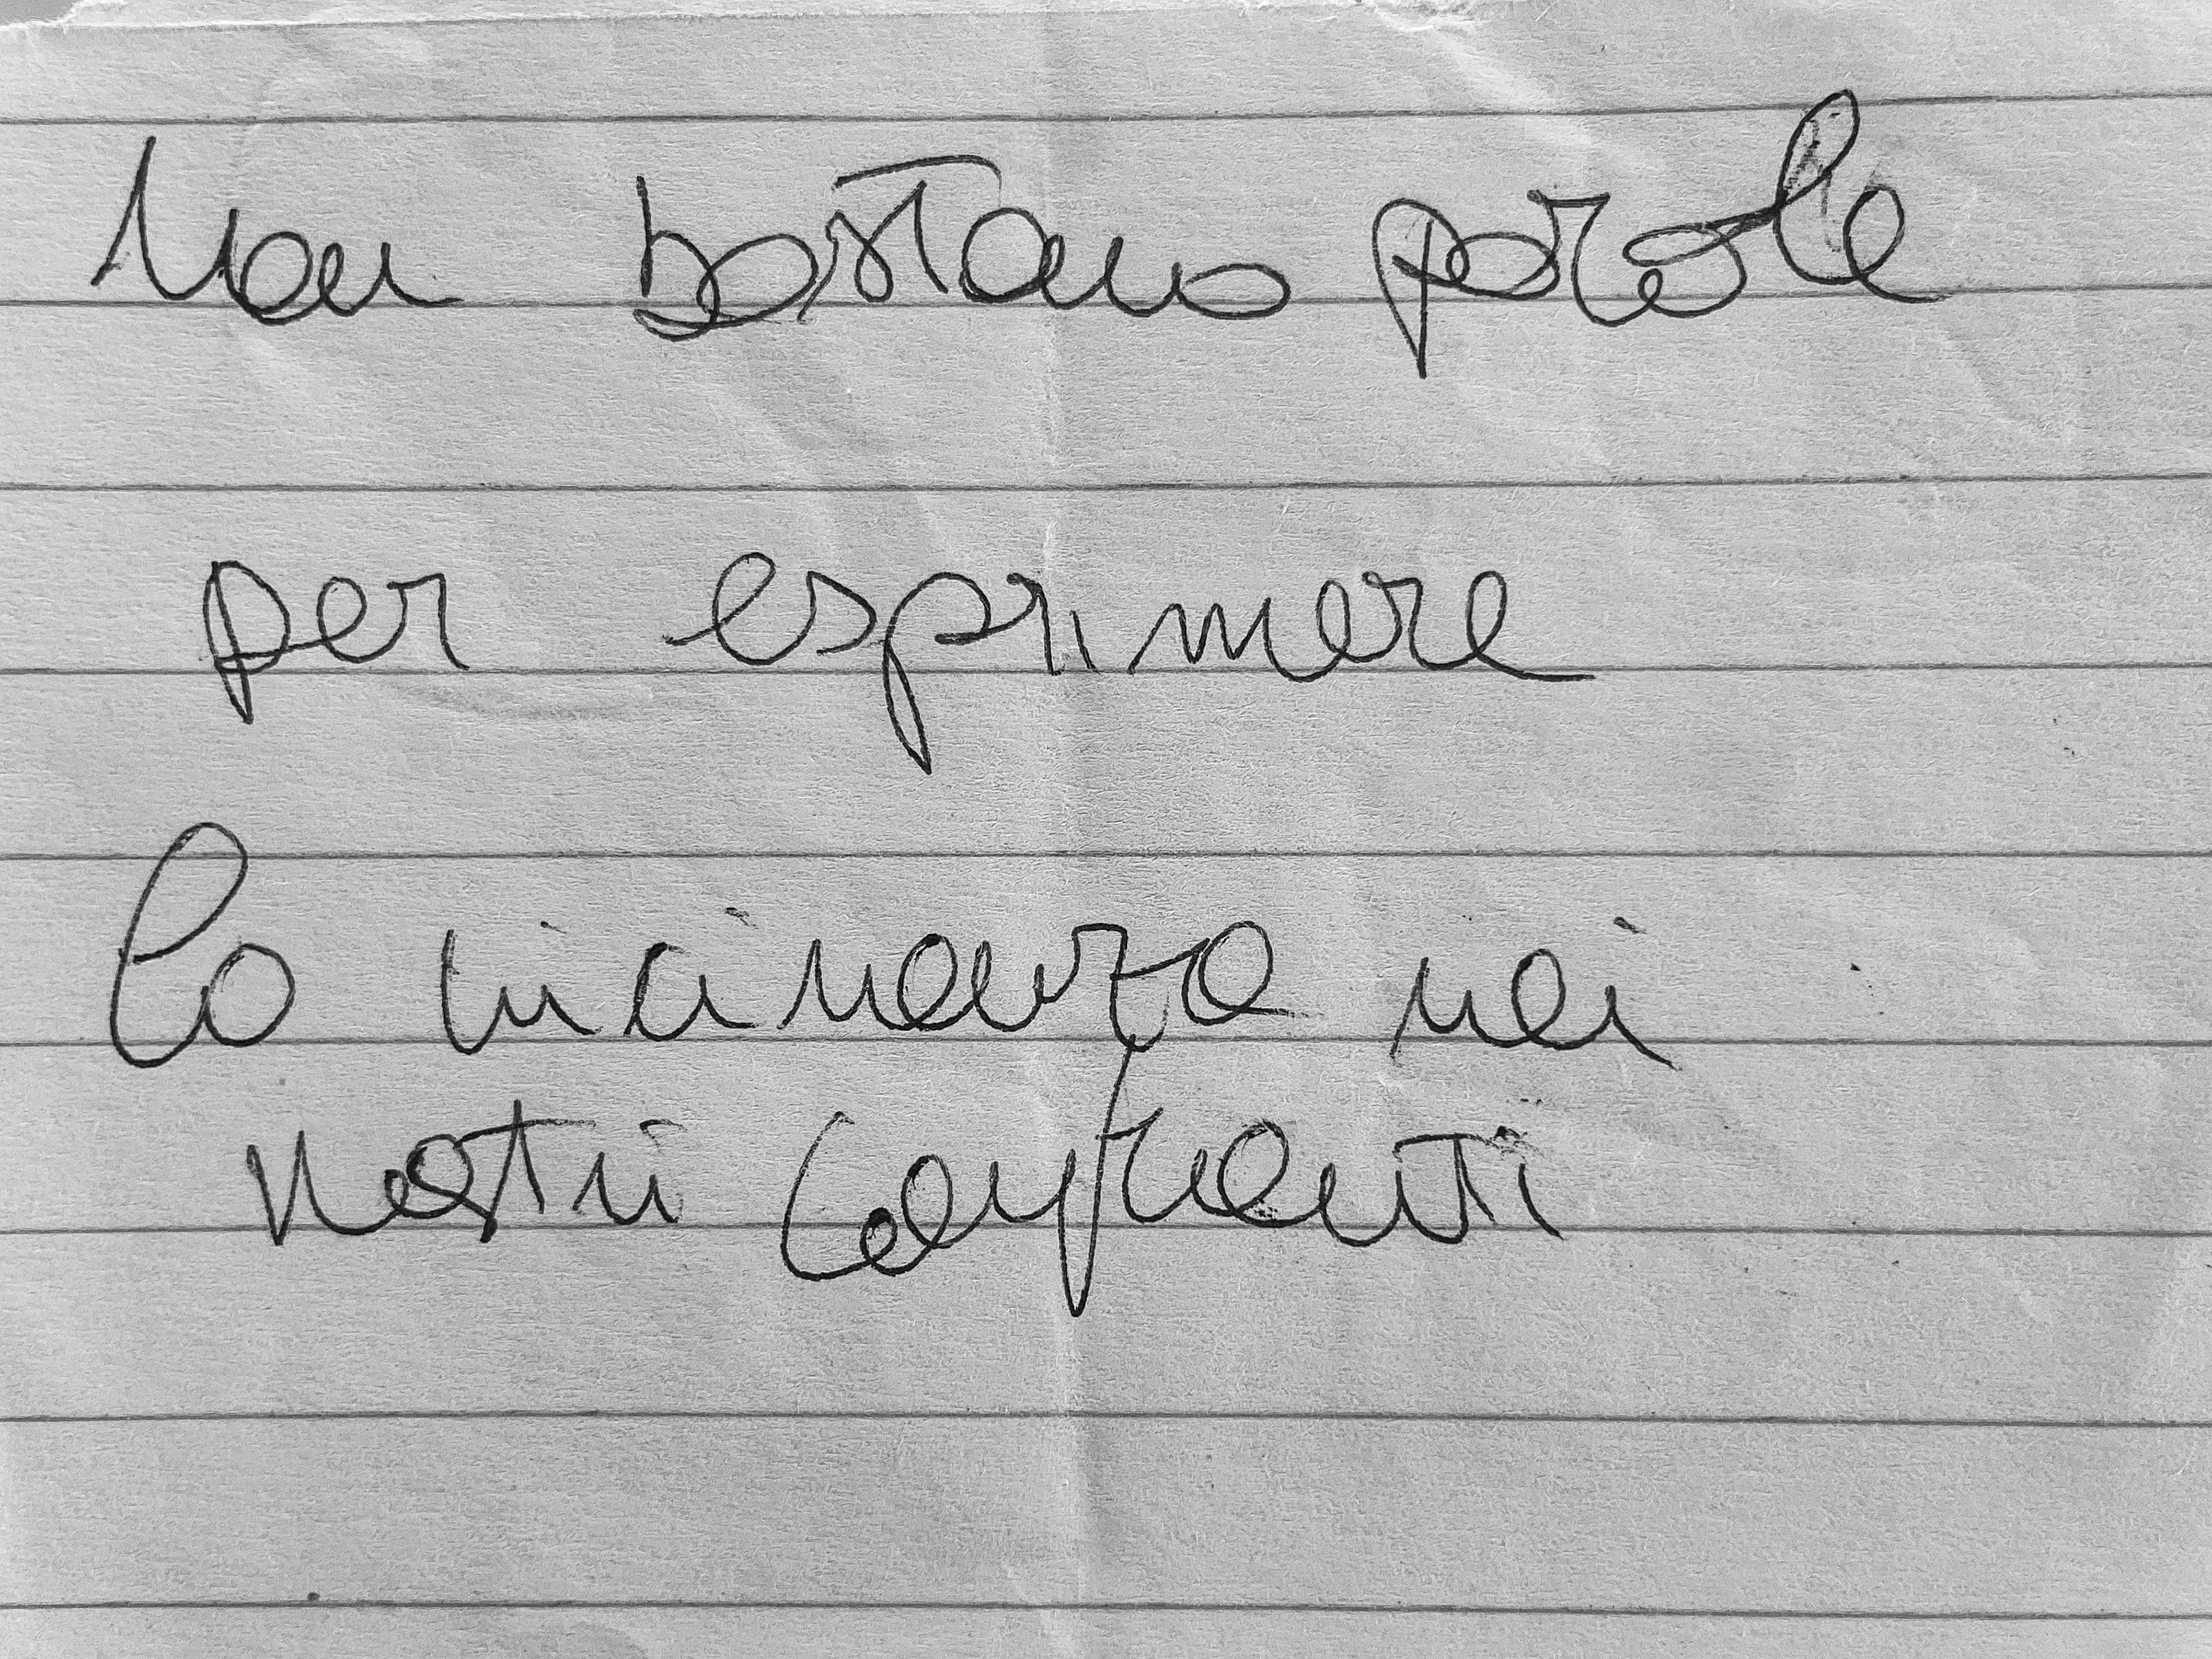 Non bastano parole
per esprimere
la vicinanza nei
nostri confronti